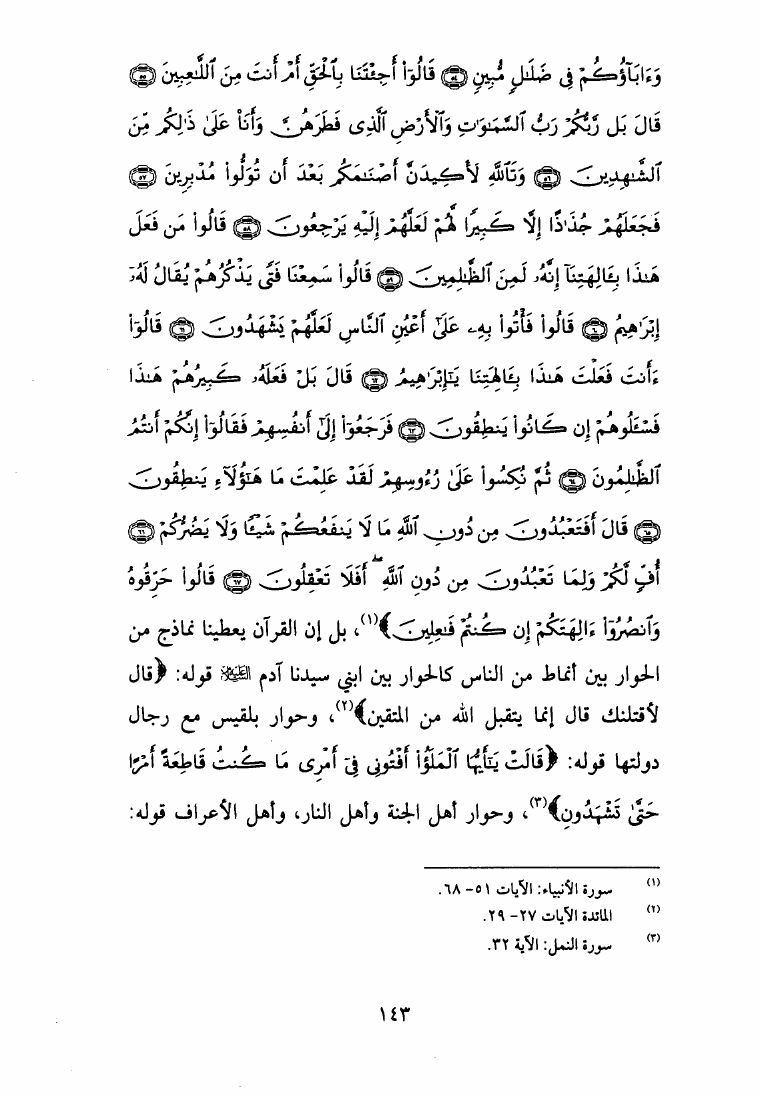 وَءَابَآؤُكُمْ فِى ضَلَٰلٍ مُّبِينٍ ﴿٥٤﴾ قَالُوٓا۟ أَجِئْتَنَا بِٱلْحَقِّ أَمْ أَنتَ مِنَ ٱللَّٰعِبِينَ ﴿٥٥﴾
قَالَ بَل رَّبُّكُمْ رَبُّ ٱلسَّمَٰوَٰتِ وَٱلْأَرْضِ ٱلَّذِى فَطَرَهُنَّ وَأَنَا۠ عَلَىٰ ذَٰلِكُم مِّنَ
ٱلشَّٰهِدِينَ ﴿٥٦﴾ وَتَٱللَّهِ لَأَكِيدَنَّ أَصْنَٰمَكُم بَعْدَ أَن تُوَلُّوا۟ مُدْبِرِينَ ﴿٥٧﴾
فَجَعَلَهُمْ جُذَٰذًا إِلَّا كَبِيرًا لَّهُمْ لَعَلَّهُمْ إِلَيْهِ يَرْجِعُونَ ﴿٥٨﴾ قَالُوا۟ مَن فَعَلَ
هَٰذَا بِـَٔالِهَتِنَآ إِنَّهُۥ لَمِنَ ٱلظَّٰلِمِينَ ﴿٥٩﴾ قَالُوا۟ سَمِعْنَا فَتًى يَذْكُرُهُمْ يُقَالُ لَهُۥٓ
إِبْرَٰهِيمُ ﴿٦٠﴾ قَالُوا۟ فَأْتُوا۟ بِهِۦ عَلَىٰٓ أَعْيُنِ ٱلنَّاسِ لَعَلَّهُمْ يَشْهَدُونَ ﴿٦١﴾ قَالُوٓا۟
ءَأَنتَ فَعَلْتَ هَٰذَا بِـَٔالِهَتِنَا يَٰٓإِبْرَٰهِيمُ ﴿٦٢﴾ قَالَ بَلْ فَعَلَهُۥ كَبِيرُهُمْ هَٰذَا
فَسْـَٔلُوهُمْ إِن كَانُوا۟ يَنطِقُونَ ﴿٦٣﴾ فَرَجَعُوٓا۟ إِلَىٰٓ أَنفُسِهِمْ فَقَالُوٓا۟ إِنَّكُمْ أَنتُمُ
ٱلظَّٰلِمُونَ ﴿٦٤﴾ ثُمَّ نُكِسُوا۟ عَلَىٰ رُءُوسِهِمْ لَقَدْ عَلِمْتَ مَا هَٰٓؤُلَآءِ يَنطِقُونَ
﴿٦٥﴾ قَالَ أَفَتَعْبُدُونَ مِن دُونِ ٱللَّهِ مَا لَا يَنفَعُكُمْ شَيْـًٔا وَلَا يَضُرُّكُمْ ﴿٦٦﴾
أُفٍّ لَّكُمْ وَلِمَا تَعْبُدُونَ مِن دُونِ ٱللَّهِ ۖ أَفَلَا تَعْقِلُونَ ﴿٦٧﴾ قَالُوا۟ حَرِّقُوهُ
وَٱنصُرُوٓا۟ ءَالِهَتَكُمْ إِن كُنتُمْ فَٰعِلِينَ﴾(١)، بل إن القرآن يعطينا نماذج من
الحوار بين أنماط من الناس كالحوار بين ابني سيدنا آدم عليه السلام قوله: ﴿قال
لأقتلنك قال إنما يتقبل الله من المتقين﴾(٢)، وحوار بلقيس مع رجال
دولتها قوله: ﴿قَالَتْ يَٰٓأَيُّهَا ٱلْمَلَؤُا۟ أَفْتُونِى فِىٓ أَمْرِى مَا كُنتُ قَاطِعَةً أَمْرًا
حَتَّىٰ تَشْهَدُونِ﴾(٣)، وحوار أهل الجنة وأهل النار، وأهل الأعراف قوله:
(١) سورة الأنبياء: الآيات ٥١- ٦٨.
(٢) المائدة الآيات ٢٧- ٢٩.
(٣) سورة النمل: الآية ٣٢.
١٤٣